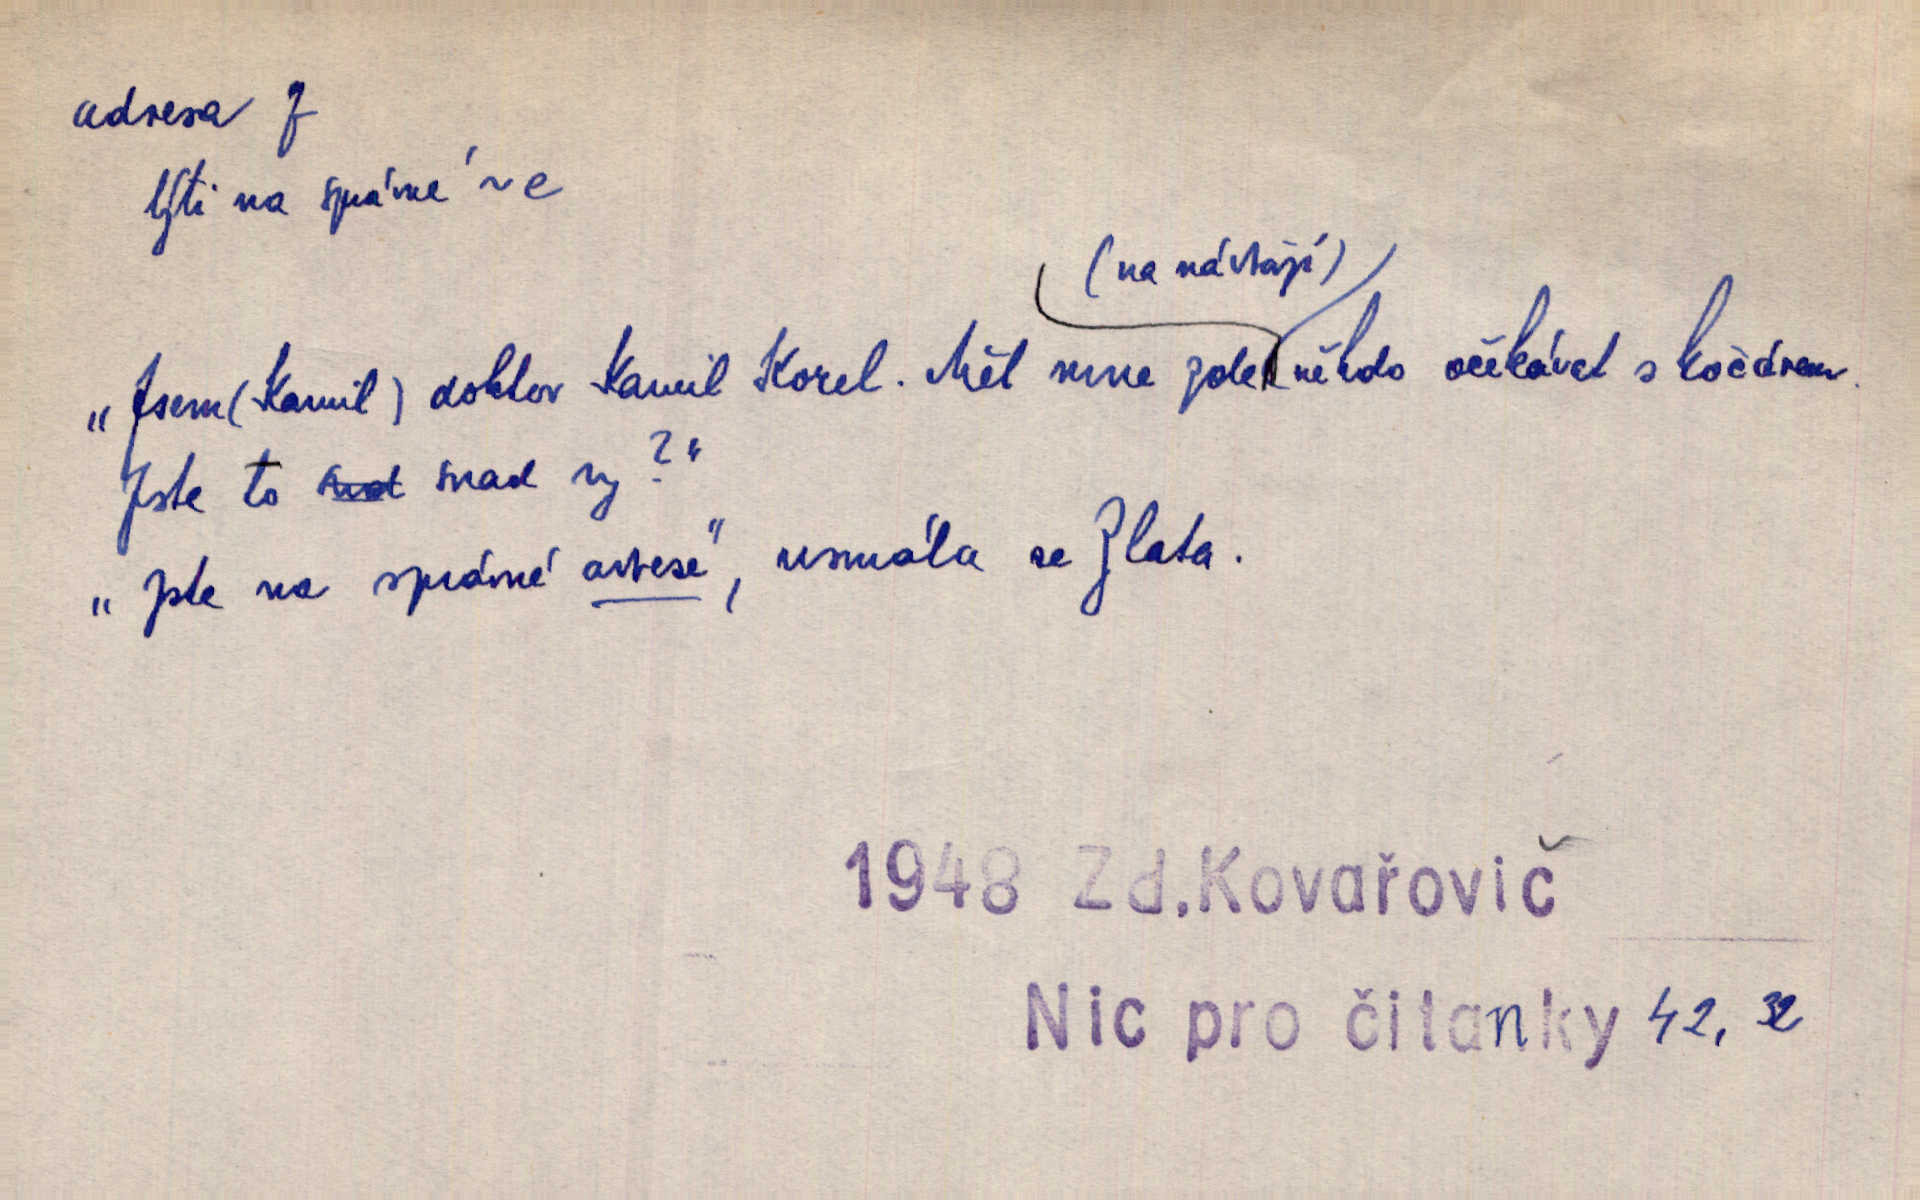 adresa f
být na správné ~e
(na nádraží)
„Jsem (Kamil) doktor Kamil Korel. Měl mne zde někdo očekávat s kočárem.
Jste to snad vy?“
„Jste na správné adrese“, usmála se Zlata.
1948 Zd.Kovařovič
Nic pro čítanky 42, 32